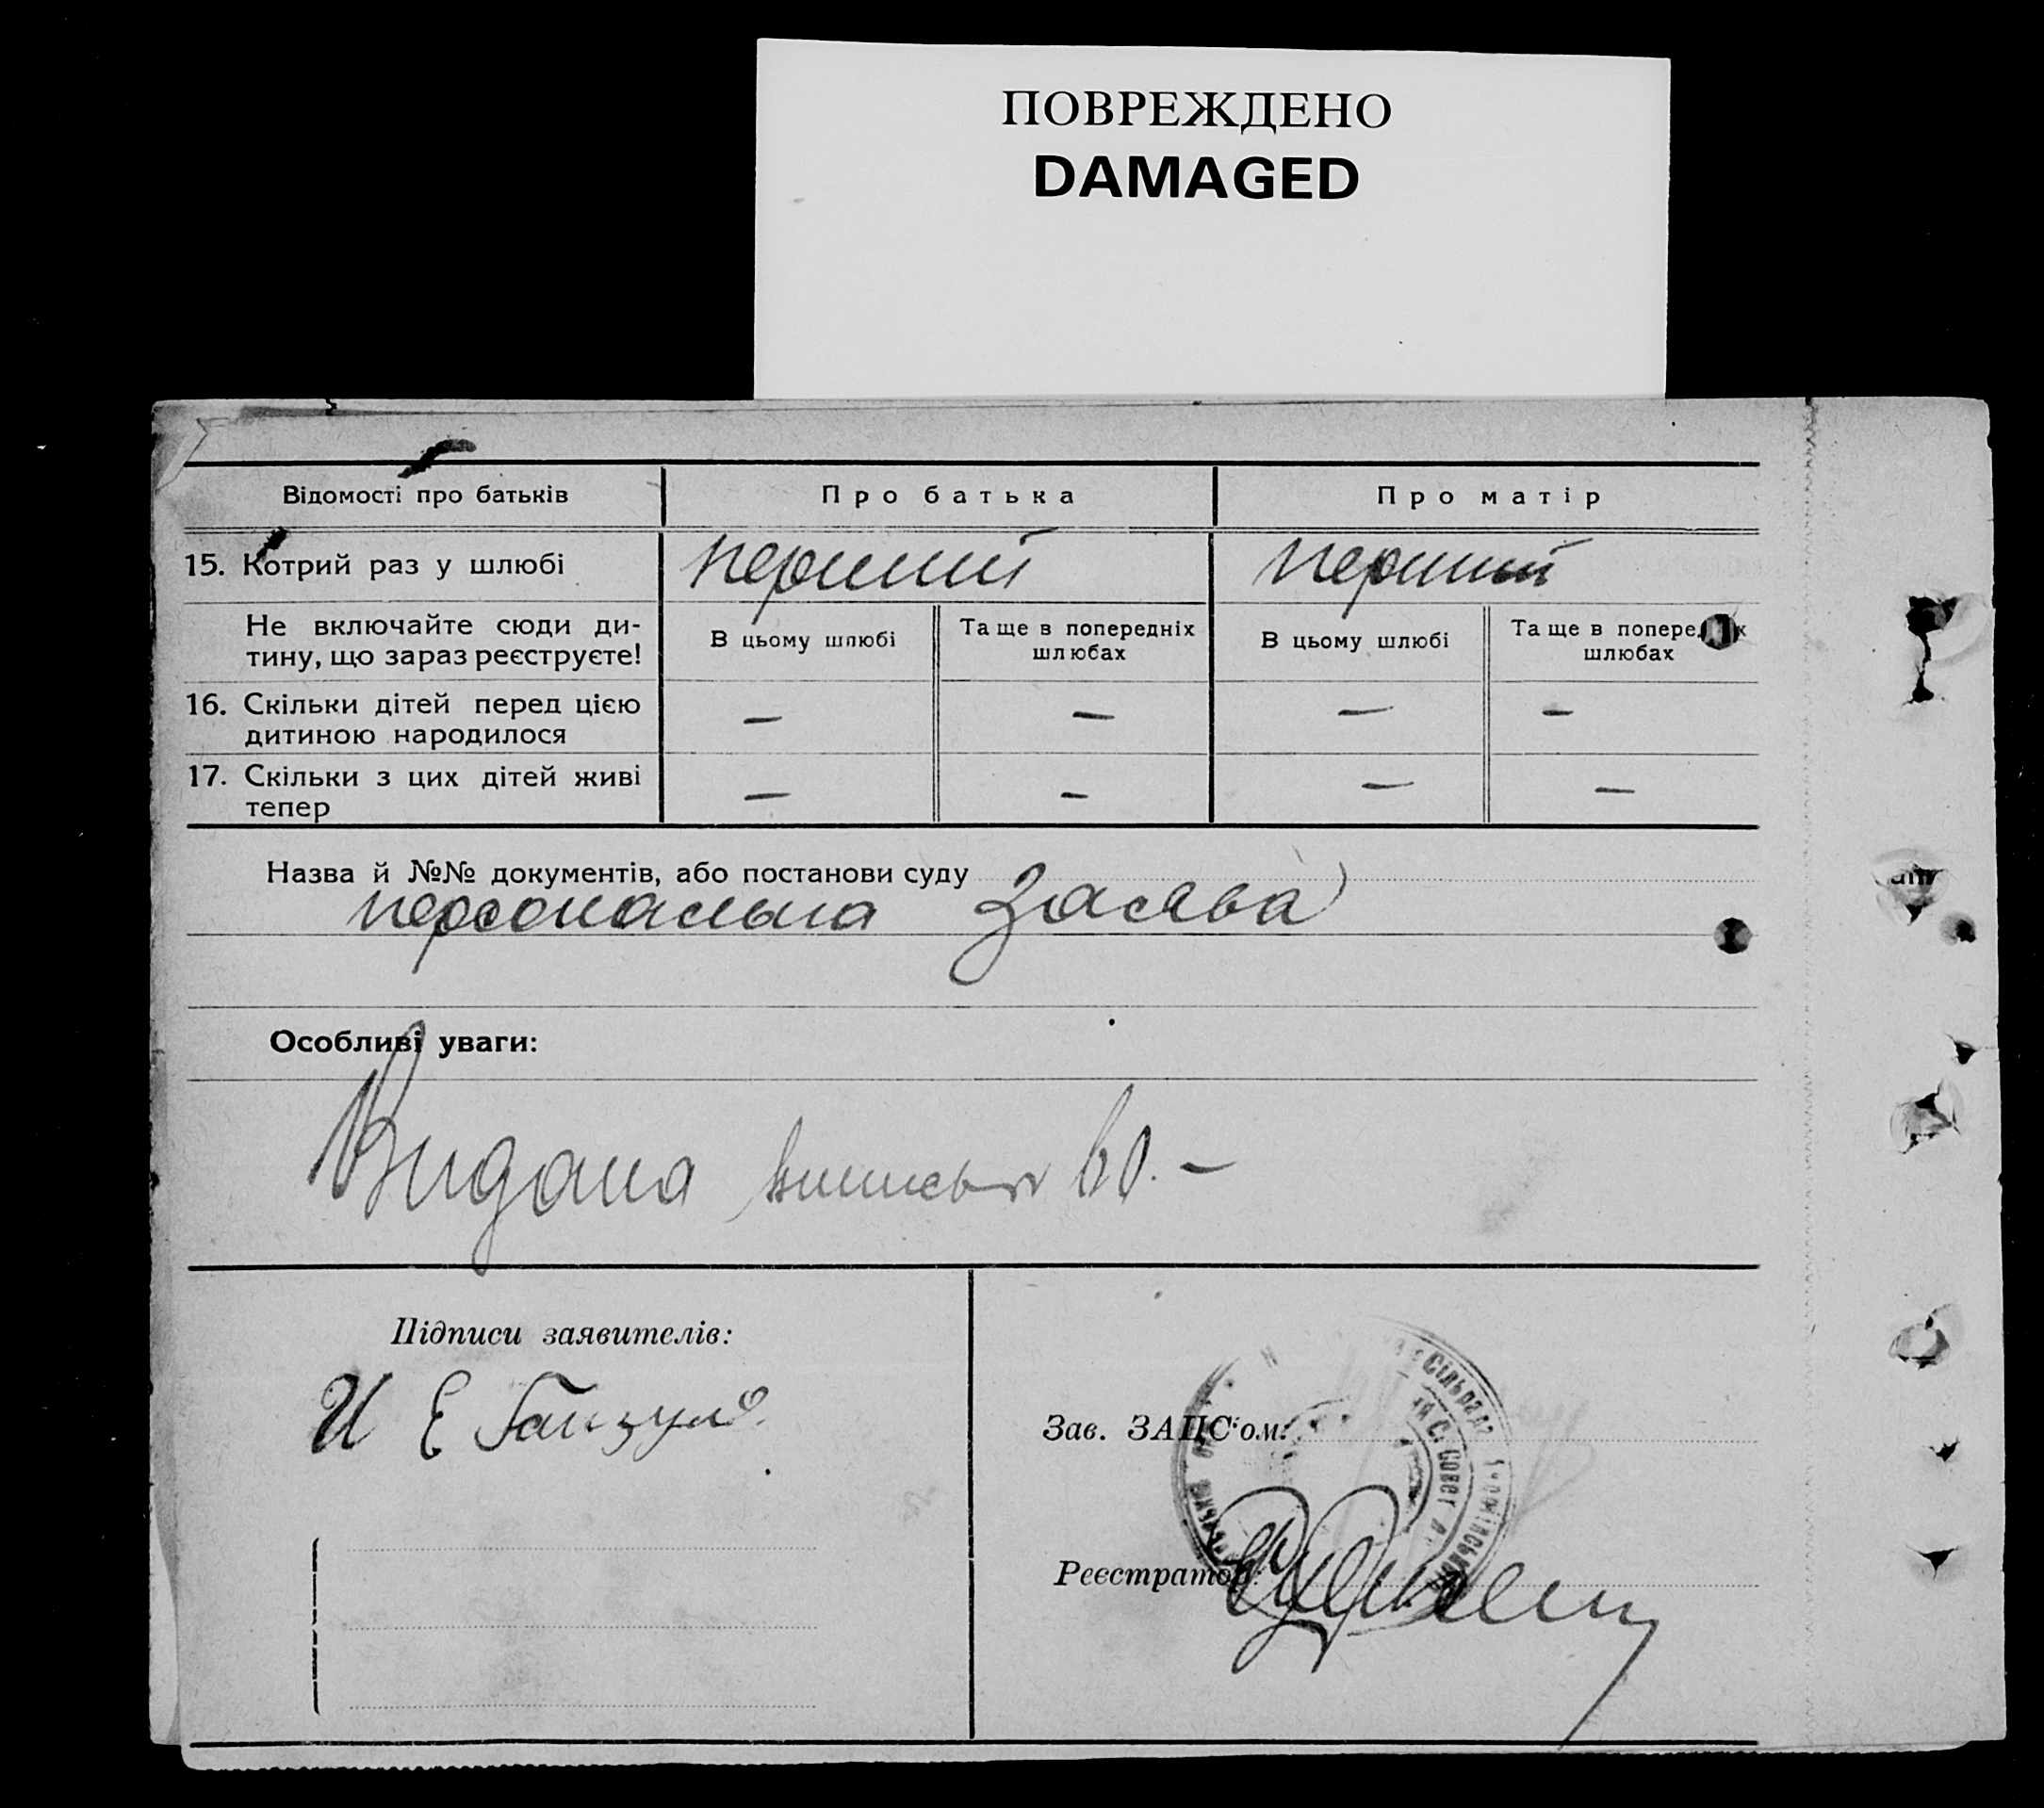 ПОВРЕЖДЕНО
DAMAGED
Відомості про батьків
Про батька
Про матір
15. Котрий раз у шлюбі
перший
перший
Не включайте сюди ди-
тину, що зараз реєструєте!
В цьому шлюбі
Та ще в попередніх
шлюбах
В цьому шлюбі
Та ще в попередніх
шлюбах
16. Скільки дітей перед цією
дитиною народилося
— — — —
17. Скільки з цих дітей живі
тепер
— — — —
Назва й №№ документів, або постанови суду
персональна заява
Особливі уваги:
Видана
Підписи заявителів:
И Е
Зав. ЗАЦС'ом:
Реєстратор: